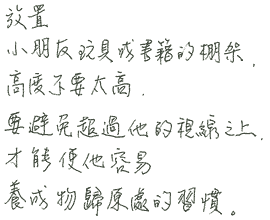 放置
小朋友玩具或書籍的棚架,
高度不要太高.
要避免超過他的視線之上,
才能使他容易
養成物歸原處的習慣。